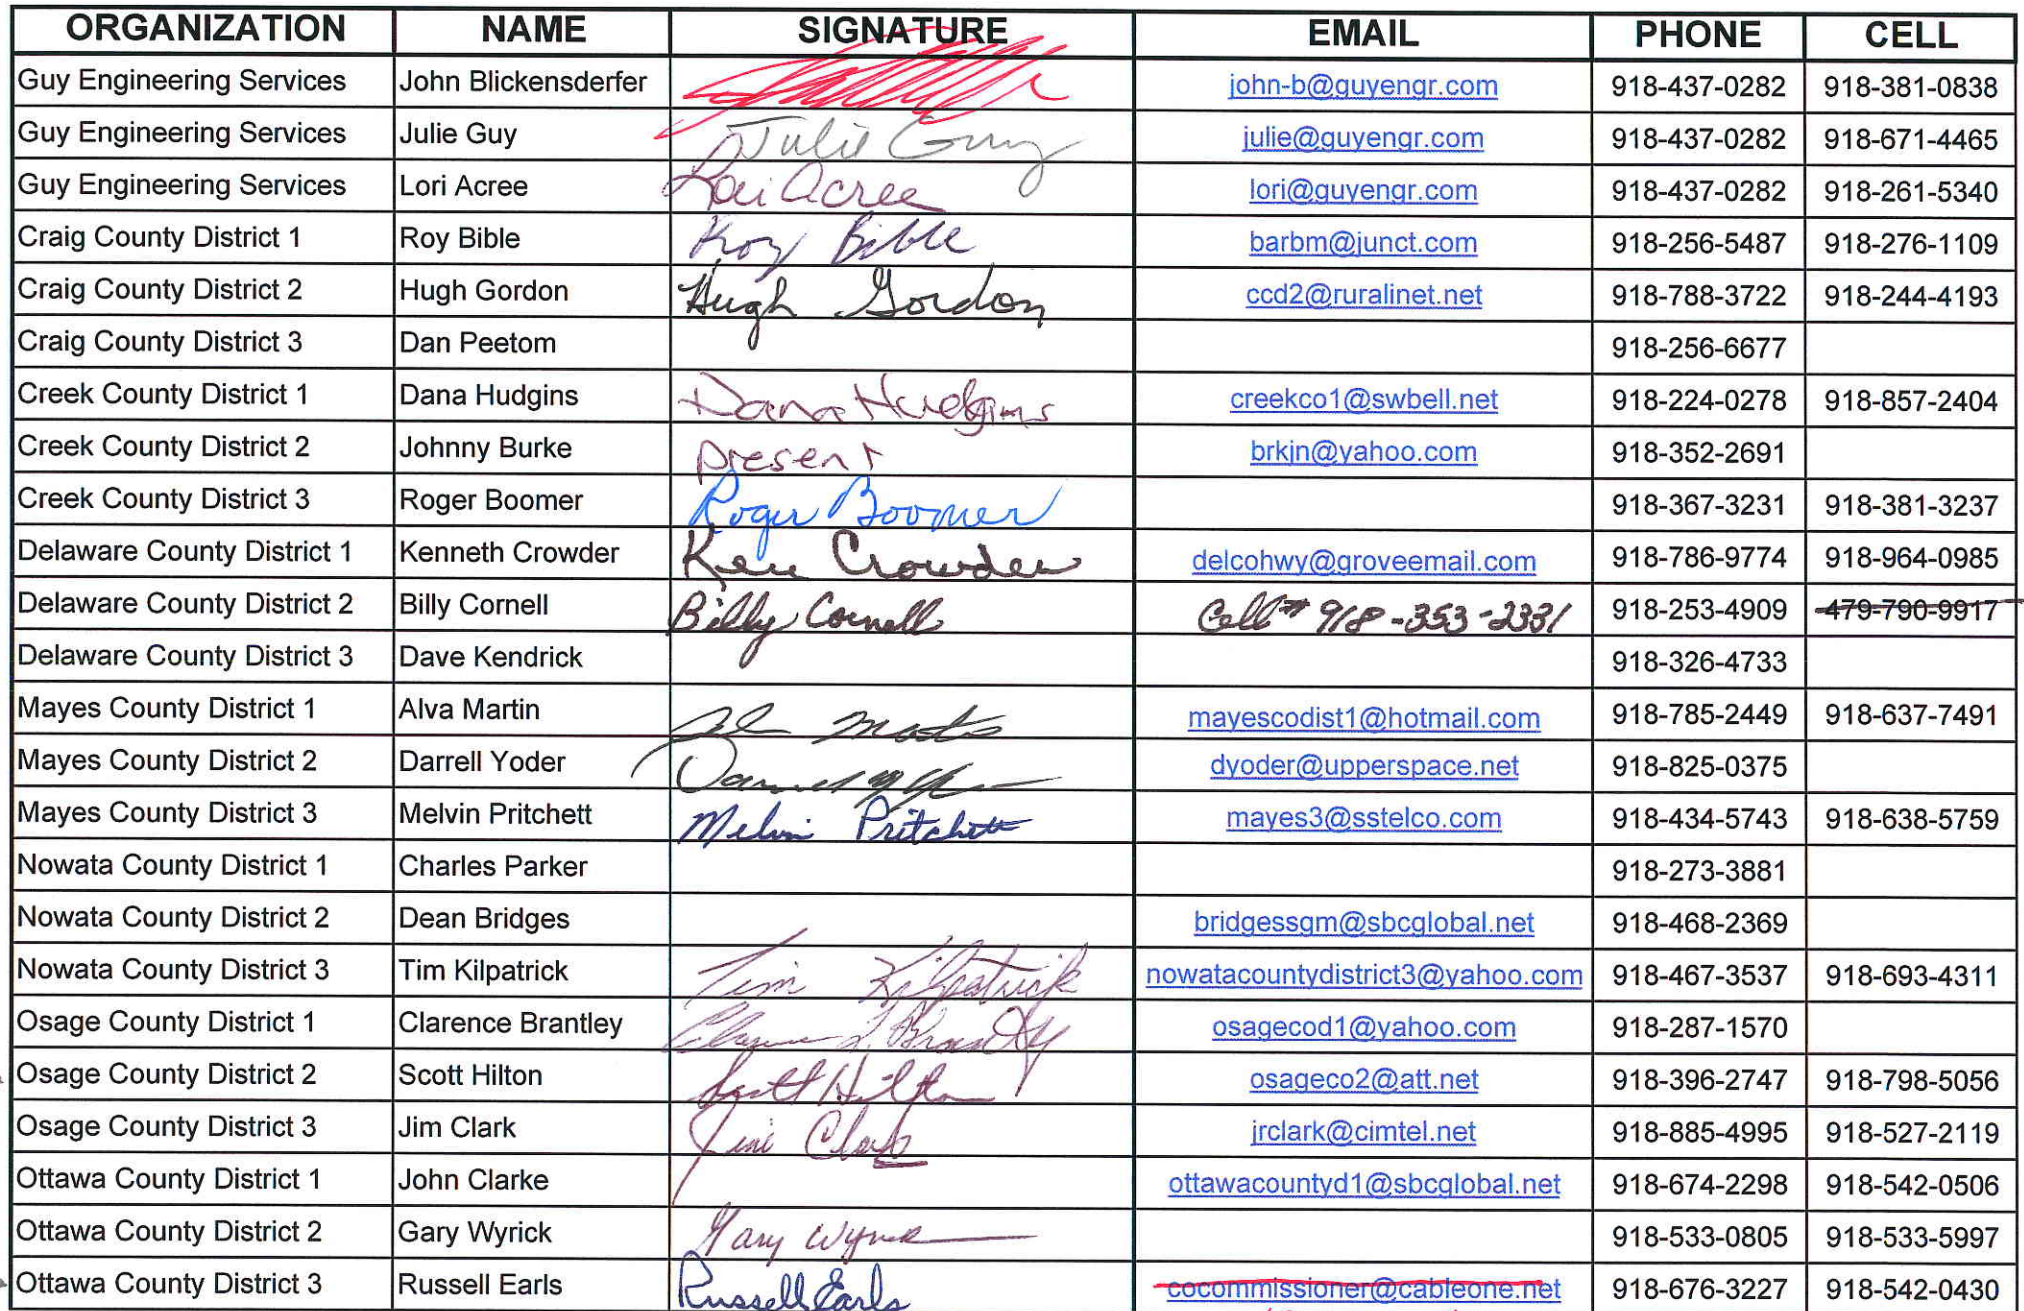 ORGANIZATION NAME SIGNATURE EMAIL PHONE CELL
Guy Engineering Services John Blickensderfer john-b@guyengr.com 918-437-0282 918-381-0838
Guy Engineering Services Julie Guy Julie Guy julie@guyengr.com 918-437-0282 918-671-4465
Guy Engineering Services Lori Acree Lori Acree lori@guyengr.com 918-437-0282 918-261-5340
Craig County District 1 Roy Bible Roy Bible barbm@junct.com 918-256-5487 918-276-1109
Craig County District 2 Hugh Gordon Hugh Gordon ccd2@ruralinet.net 918-788-3722 918-244-4193
Craig County District 3 Dan Peetom 918-256-6677
Creek County District 1 Dana Hudgins Dana Hudgins creekco1@swbell.net 918-224-0278 918-857-2404
Creek County District 2 Johnny Burke present brkjn@yahoo.com 918-352-2691
Creek County District 3 Roger Boomer Roger Boomer 918-367-3231 918-381-3237
Delaware County District 1 Kenneth Crowder Ken Crowder delcohwy@groveemail.com 918-786-9774 918-964-0985
Delaware County District 2 Billy Cornell Billy Cornell Cell# 918-353-2331 918-253-4909 479-790-9917
Delaware County District 3 Dave Kendrick 918-326-4733
Mayes County District 1 Alva Martin mayescodist1@hotmail.com 918-785-2449 918-637-7491
Mayes County District 2 Darrell Yoder dyoder@upperspace.net 918-825-0375
Mayes County District 3 Melvin Pritchett Melvin Pritchett mayes3@sstelco.com 918-434-5743 918-638-5759
Nowata County District 1 Charles Parker 918-273-3881
Nowata County District 2 Dean Bridges bridgessgm@sbcglobal.net 918-468-2369
Nowata County District 3 Tim Kilpatrick Tim Kilpatrick nowatacountydistrict3@yahoo.com 918-467-3537 918-693-4311
Osage County District 1 Clarence Brantley Clarence L. Brantley osagecod1@yahoo.com 918-287-1570
Osage County District 2 Scott Hilton Scott Hilton osageco2@att.net 918-396-2747 918-798-5056
Osage County District 3 Jim Clark Jim Clark jrclark@cimtel.net 918-885-4995 918-527-2119
Ottawa County District 1 John Clarke ottawacountyd1@sbcglobal.net 918-674-2298 918-542-0506
Ottawa County District 2 Gary Wyrick Gary Wyrick 918-533-0805 918-533-5997
Ottawa County District 3 Russell Earls Russell Earls cocommissioner@cableone.net 918-676-3227 918-542-0430